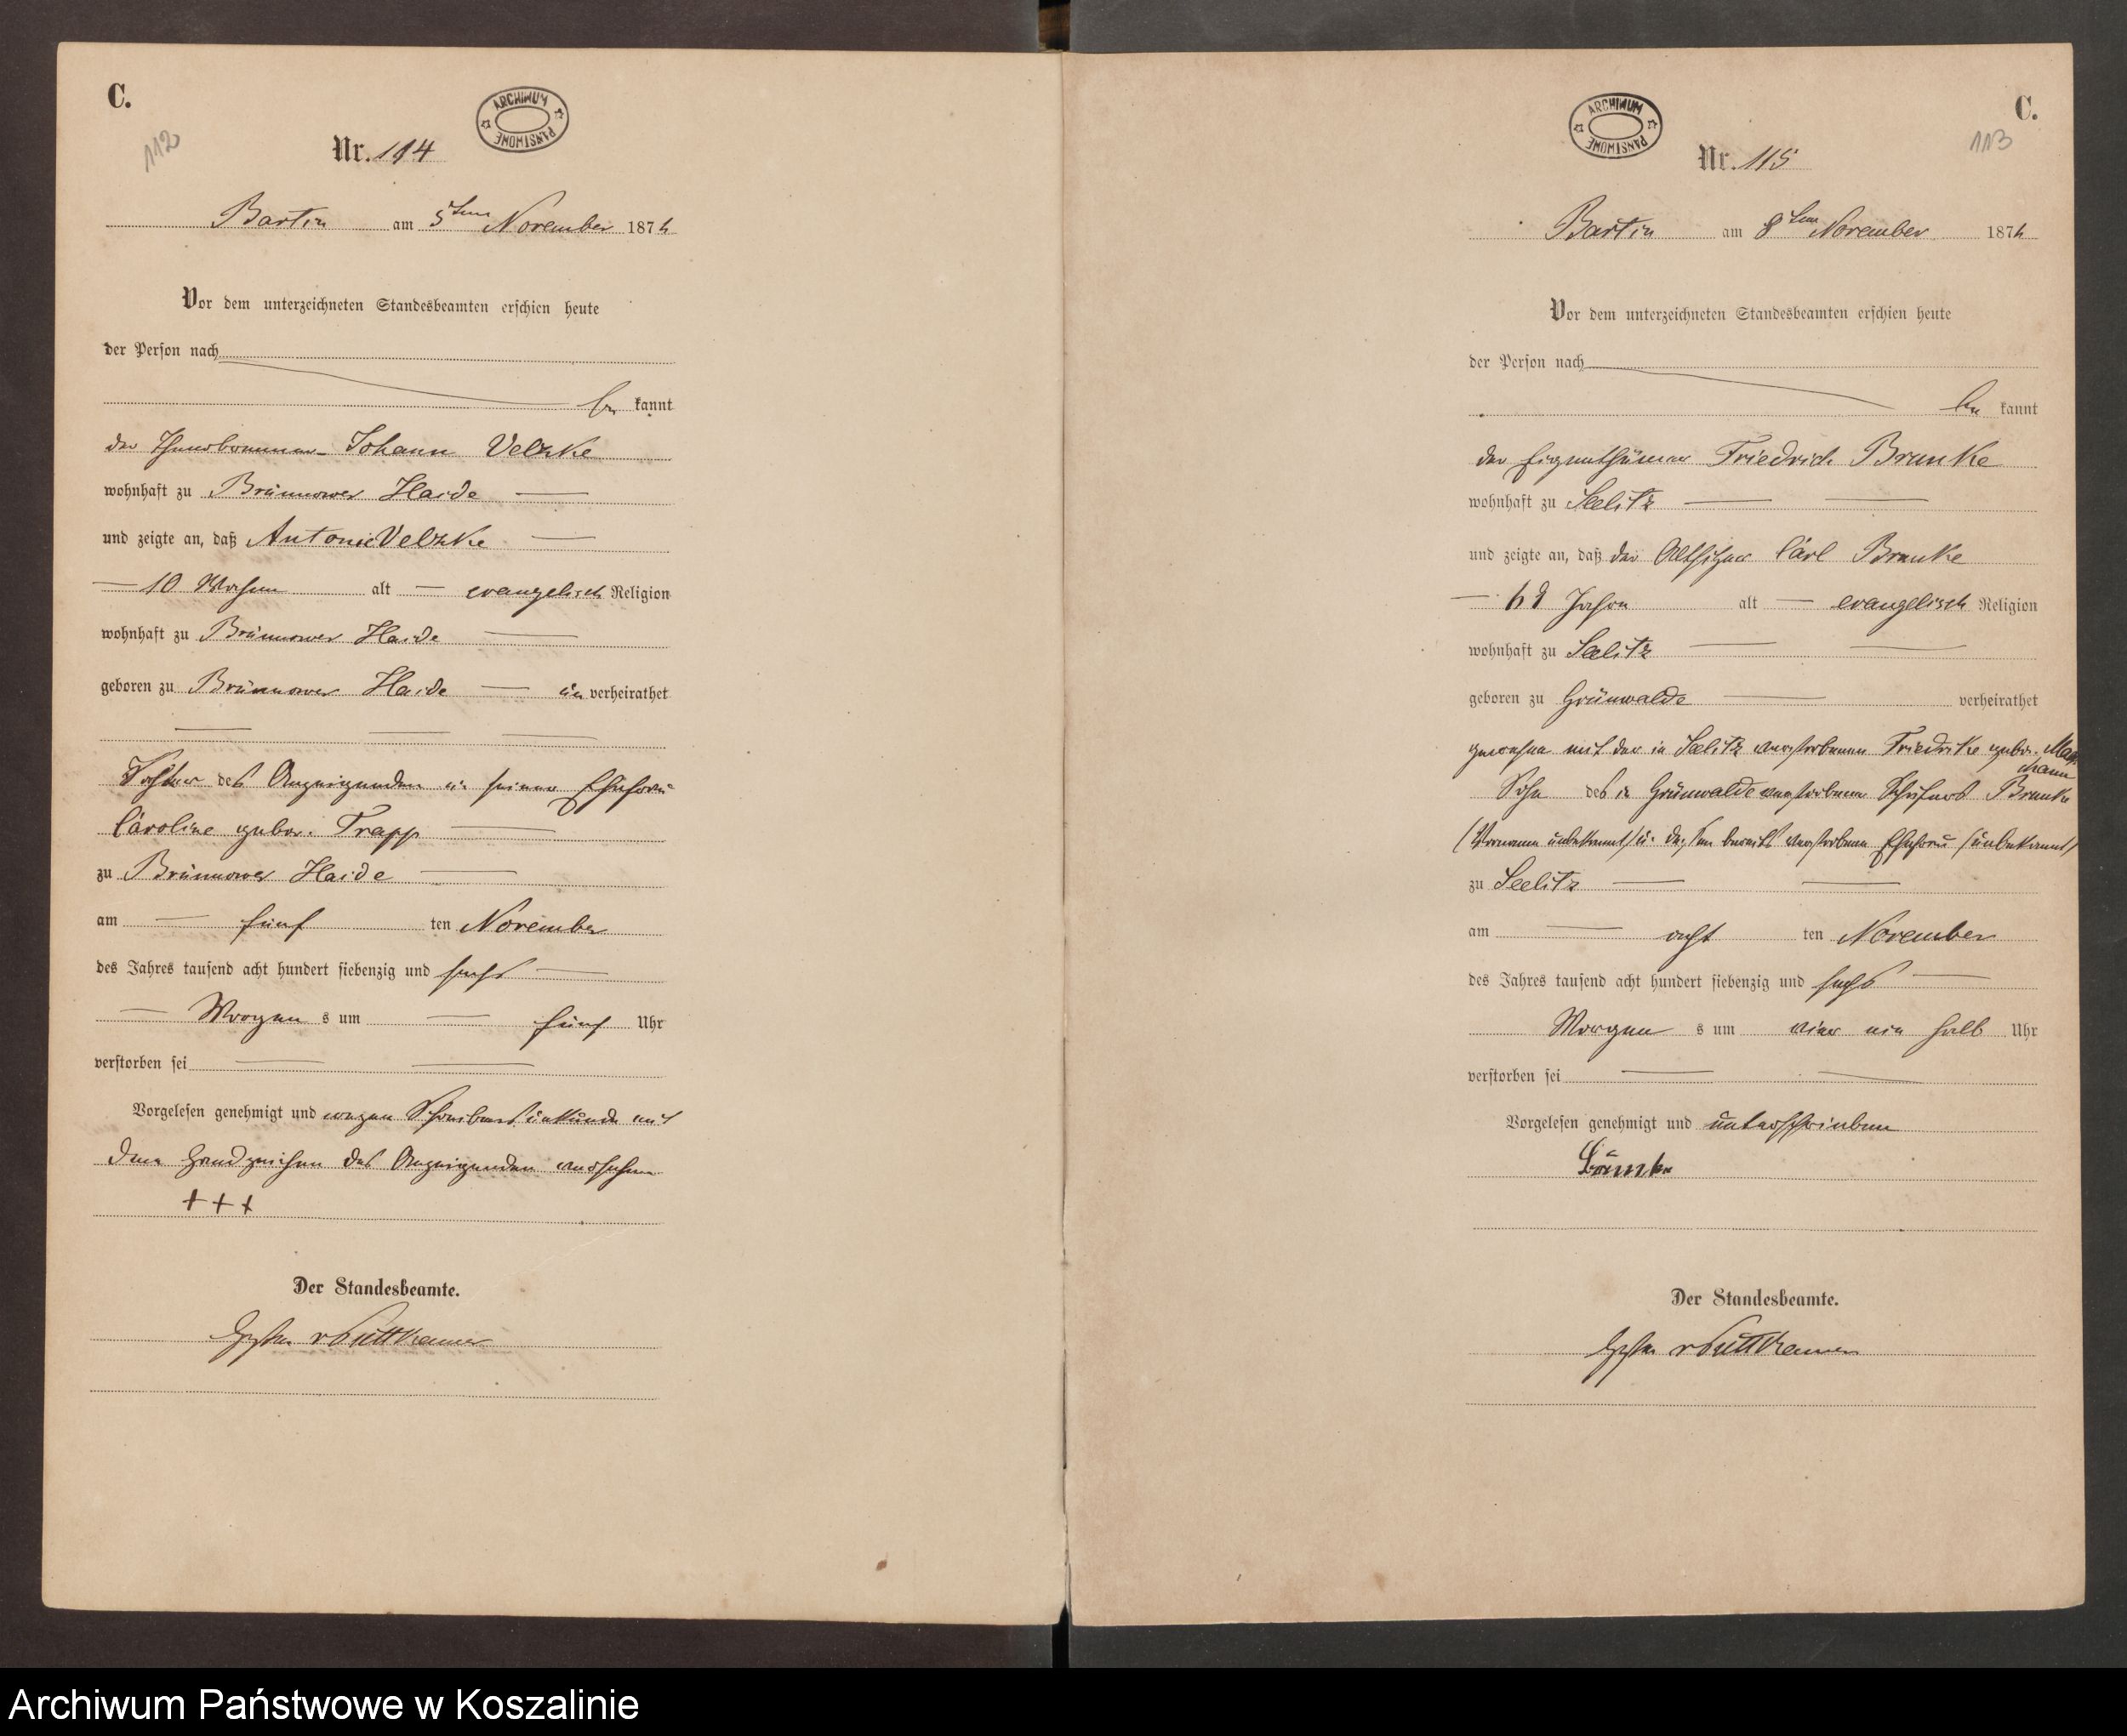 C.
112
ARCHIWUM PAŃSTWOWE
Nr. 114
Bartin am 5ten November 1876
Vor dem unterzeichneten Standesbeamten erschien heute
der Person nach
be kannt
der Johann Velzke
wohnhaft zu Brünnower Haide
und zeigte an, daß Antonie Velzke
10 Wochen alt evangelisch Religion
wohnhaft zu Brünnower Haide
geboren zu Brünnower Haide un verheirathet
Tochter des Anzeigenden u. seiner Ehefrau
Caroline gebor. Trapp
zu Brünnower Haide
am fünf ten November
des Jahres tausend acht hundert siebenzig und sechs
Morgen s um fünf Uhr
verstorben sei
Vorgelesen genehmigt und wegen Schreibensunkunde mit
dem Handzeichen des Anzeigenden versehen
+++
Der Standesbeamte.
v Puttkamer
C.
113
ARCHIWUM PAŃSTWOWE
Nr. 115
Bartin am 8ten November 1876
Vor dem unterzeichneten Standesbeamten erschien heute
der Person nach
be kannt
der Eigenthümer Friedrich Brunke
wohnhaft zu Seelitz
und zeigte an, daß der Altsitzer Carl Brunke
Jahre alt evangelisch Religion
wohnhaft zu Seelitz
geboren zu Grünwalde verheirathet
gewesen mit der in Seelitz verstorbenen Friedrike gebor.
Sohn des in Grünwalde verstorbenen Schäfers Brunke
(Vorname unbekannt) u. dessen bereits verstorbene Ehefrau (unbekannt)
zu Seelitz
am acht ten November
des Jahres tausend acht hundert siebenzig und sechs
Morgen s um vier ein halb Uhr
verstorben sei
Vorgelesen genehmigt und unterschrieben
Der Standesbeamte.
v Puttkamer
Archiwum Państwowe w Koszalinie